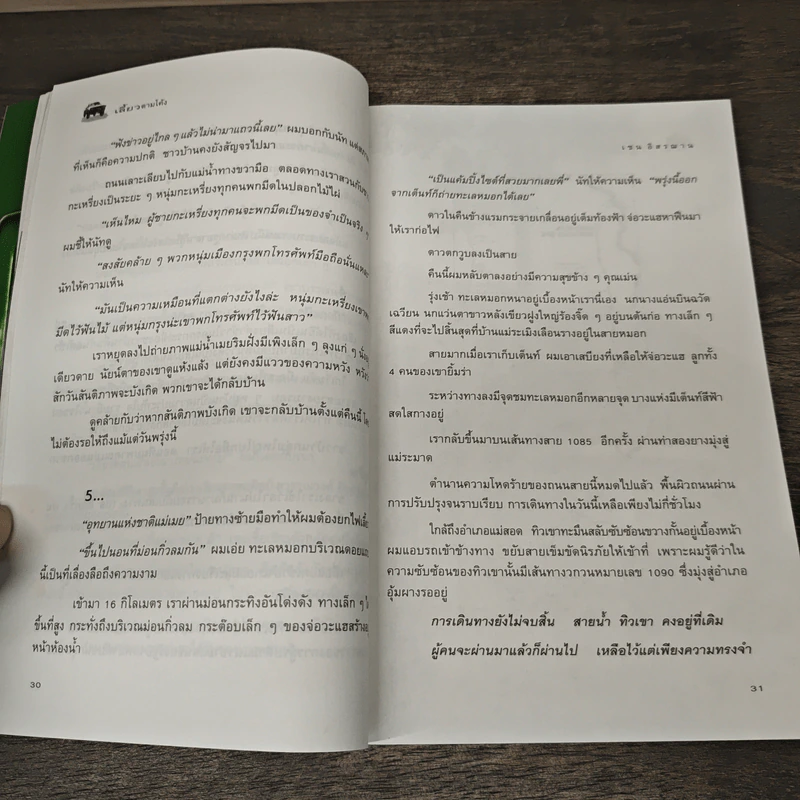 เลี้ยวตามโค้ง
“ฟังข่าวอยู่ไกล ๆ แล้วไม่น่ามาแถวนี้เลย” ผมบอกกับนัท
ที่เห็นก็คือความปกติ ชาวบ้านคงยังสัญจรไปมา
ถนนเลาะเลียบไปกับแม่น้ำทางขวามือ ตลอดทางเราสวนกับ
กะเหรี่ยงเป็นระยะ ๆ หนุ่มกะเหรี่ยงทุกคนพกมีดในปลอกไม้ไผ่
“เห็นไหม ผู้ชายกะเหรี่ยงทุกคนจะพกมีดเป็นของจำเป็นจริง ๆ
ผมชี้ให้นัทดู
“สงสัยคล้าย ๆ พวกหนุ่มเมืองกรุงพกโทรศัพท์มือถือนั่นแหละ
นัทให้ความเห็น
“มันเป็นความเหมือนที่แตกต่างยังไงล่ะ หนุ่มกะเหรี่ยงเขา
มีดไว้ฟันไม้ แต่หนุ่มกรุงน่ะเขาพกโทรศัพท์ไว้ฟันสาว”
เราหยุดลงไปถ่ายภาพแม่น้ำเมยริมฝั่งมีเพิงเล็ก ๆ ลุงแก่ ๆ
เดียวดาย นัยน์ตาของเขาดูแห้งแล้ง แต่ยังคงมีแววของความหวัง
สักวันสันติภาพจะบังเกิด พวกเขาจะได้กลับบ้าน
ดูคล้ายกับว่าหากสันติภาพบังเกิด เขาจะกลับบ้านตั้งแต่คืนนี้
ไม่ต้องรอให้ถึงแม้แต่วันพรุ่งนี้
5...
“อุทยานแห่งชาติแม่เมย” ป้ายทางซ้ายมือทำให้ผมต้องยกไฟเลี้ยว
“ขึ้นไปนอนที่ม่อนกิ่วลมกัน” ผมเอ่ย ทะเลหมอกบริเวณดอย
นี้เป็นที่เลื่องลือถึงความงาม
เข้ามา 16 กิโลเมตร เราผ่านม่อนกระทิงอันโด่งดัง ทางเล็ก ๆ
ขึ้นที่สูง กระทั่งถึงบริเวณม่อนกิ่วลม กระต๊อบเล็ก ๆ ของจ่อวะแฮสร้าง
หน้าห้องน้ำ
30
เชน อิสรณาน
“เป็นแค้มปิ้งไซด์ที่สวยมากเลยพี่” นัทให้ความเห็น “พรุ่งนี้ออก
จากเต็นท์ก็ถ่ายทะเลหมอกได้เลย”
ดาวในคืนข้างแรมกระจายเกลื่อนอยู่เต็มท้องฟ้า จ่อวะแฮหาฟืนมา
ให้เราก่อไฟ
ดาวตกวูบลงเป็นสาย
คืนนี้ผมหลับตาลงอย่างมีความสุขข้าง ๆ คุณเม่น
รุ่งเช้า ทะเลหมอกหนาอยู่เบื้องหน้าเรานี่เอง นกนางแอ่นบินฉวัด
เฉวียน นกแว่นตาขาวหลังเขียวฝูงใหญ่ร้องจี๊ด ๆ อยู่บนต้นก่อ ทางเล็ก ๆ
สีแดงที่จะไปสิ้นสุดที่บ้านแม่ระเมิงเลือนรางอยู่ในสายหมอก
สายมากเมื่อเราเก็บเต็นท์ ผมเอาเสบียงที่เหลือให้จ่อวะแฮ ลูกทั้ง
4 คนของเขายิ้มร่า
ระหว่างทางลงมีจุดชมทะเลหมอกอีกหลายจุด บางแห่งมีเต็นท์สีฟ้า
สดใสกางอยู่
เรากลับขึ้นมาบนเส้นทางสาย 1085 อีกครั้ง ผ่านท่าสองยางมุ่งสู่
แม่ระมาด
ตำนานความโหดร้ายของถนนสายนี้หมดไปแล้ว พื้นผิวถนนผ่าน
การปรับปรุงจนราบเรียบ การเดินทางในวันนี้เหลือเพียงไม่กี่ชั่วโมง
ใกล้ถึงอำเภอแม่สอด ทิวเขาทะมึนสลับซับซ้อนขวางกั้นอยู่เบื้องหน้า
ผมแอบรถเข้าข้างทาง ขยับสายเข็มขัดนิรภัยให้เข้าที่ เพราะผมรู้ดีว่าใน
ความซับซ้อนของทิวเขานั้นมีเส้นทางวกวนหมายเลข 1090 ซึ่งมุ่งสู่อำเภอ
อุ้มผางรออยู่
การเดินทางยังไม่จบสิ้น สายน้ำ ทิวเขา คงอยู่ที่เดิม
ผู้คนจะผ่านมาแล้วก็ผ่านไป เหลือไว้แต่เพียงความทรงจำ
31